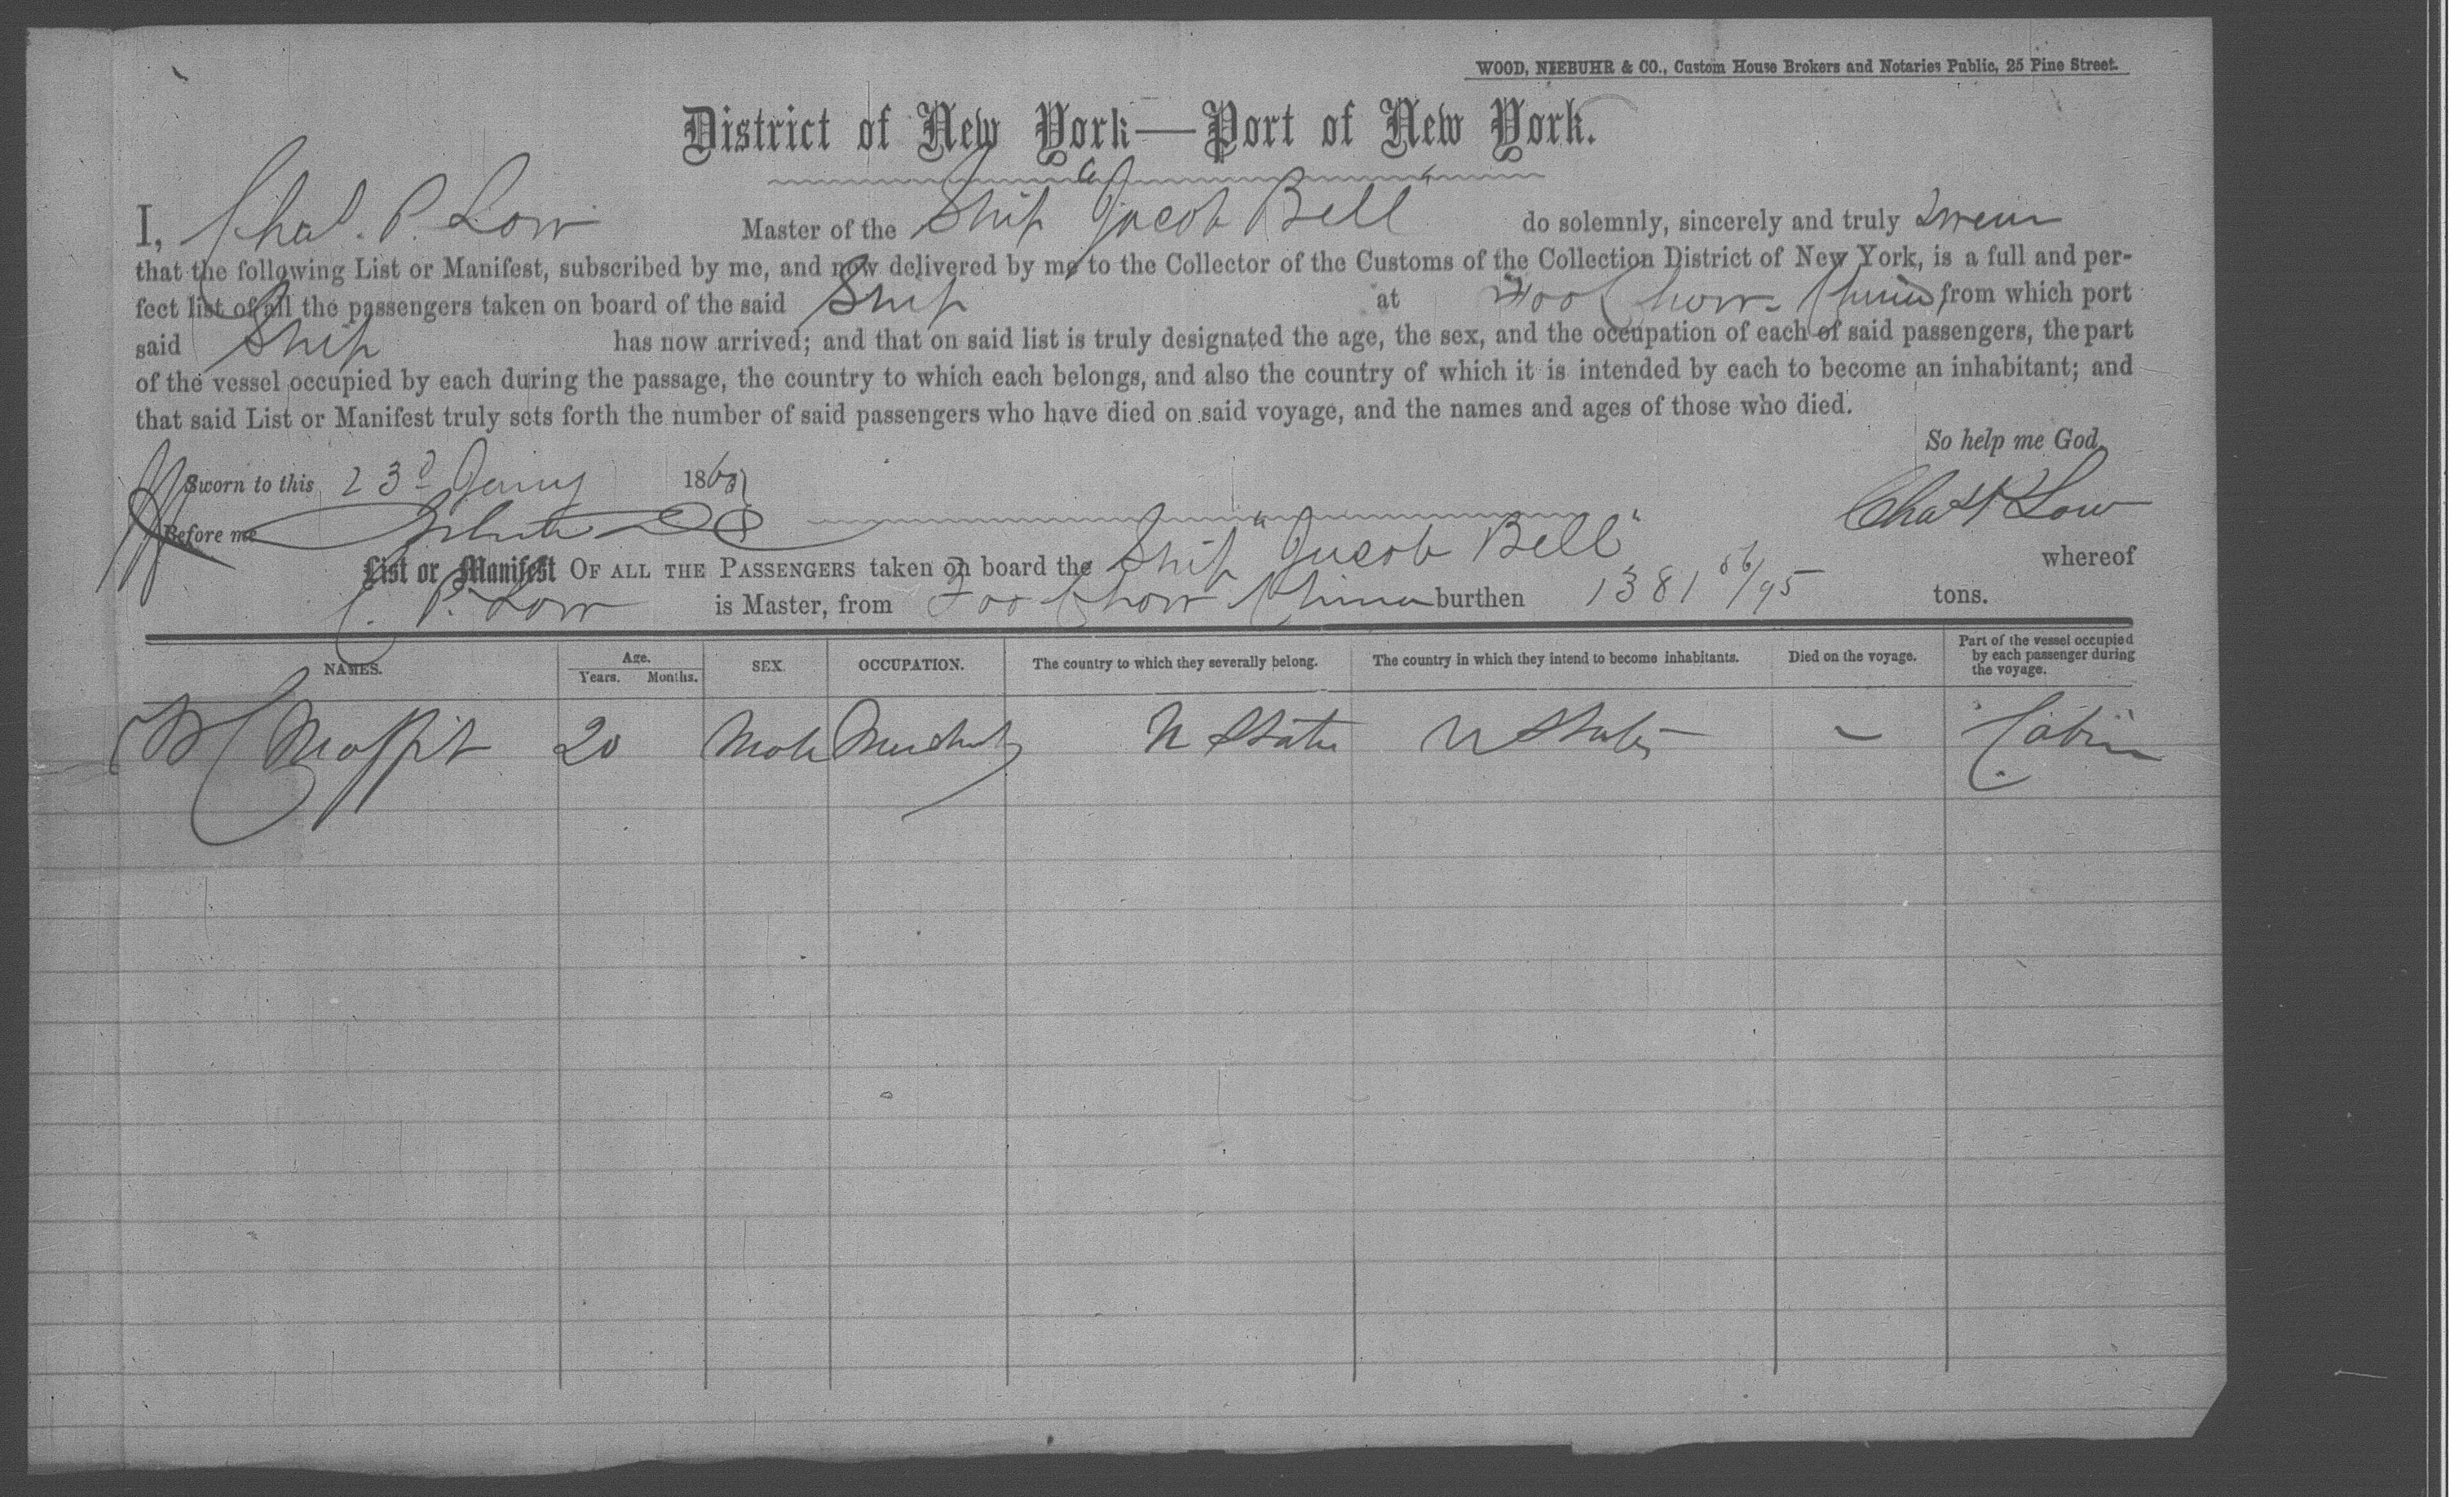 WOOD, NIEBUHR & CO., Custom House Brokers and Notaries Public, 25 Pine Street.
District of New York—Port of New York.
I, Chas. P. Low Master of the Ship "Jacob Bell" do solemnly, sincerely and truly Swear
that the following List or Manifest, subscribed by me, and now delivered by me to the Collector of the Customs of the Collection District of New York, is a full and per-
fect list of all the passengers taken on board of the said Ship at Foo Chow China from which port
said Ship has now arrived; and that on said list is truly designated the age, the sex, and the occupation of each of said passengers, the part
of the vessel occupied by each during the passage, the country to which each belongs, and also the country of which it is intended by each to become an inhabitant; and
that said List or Manifest truly sets forth the number of said passengers who have died on said voyage, and the names and ages of those who died.
So help me God.
Sworn to this 23d 186
Before me
Chas P Low
List or Manifest OF ALL THE PASSENGERS taken on board the Ship "Jacob Bell" whereof
C. P. Low is Master, from Foo Chow China burthen 1381 /95 tons.
NAMES. Age. Years. Months. SEX. OCCUPATION. The country to which they severally belong. The country in which they intend to become inhabitants. Died on the voyage. Part of the vessel occupied by each passenger during the voyage.
Moffit 20 Male U States U States — Cabin